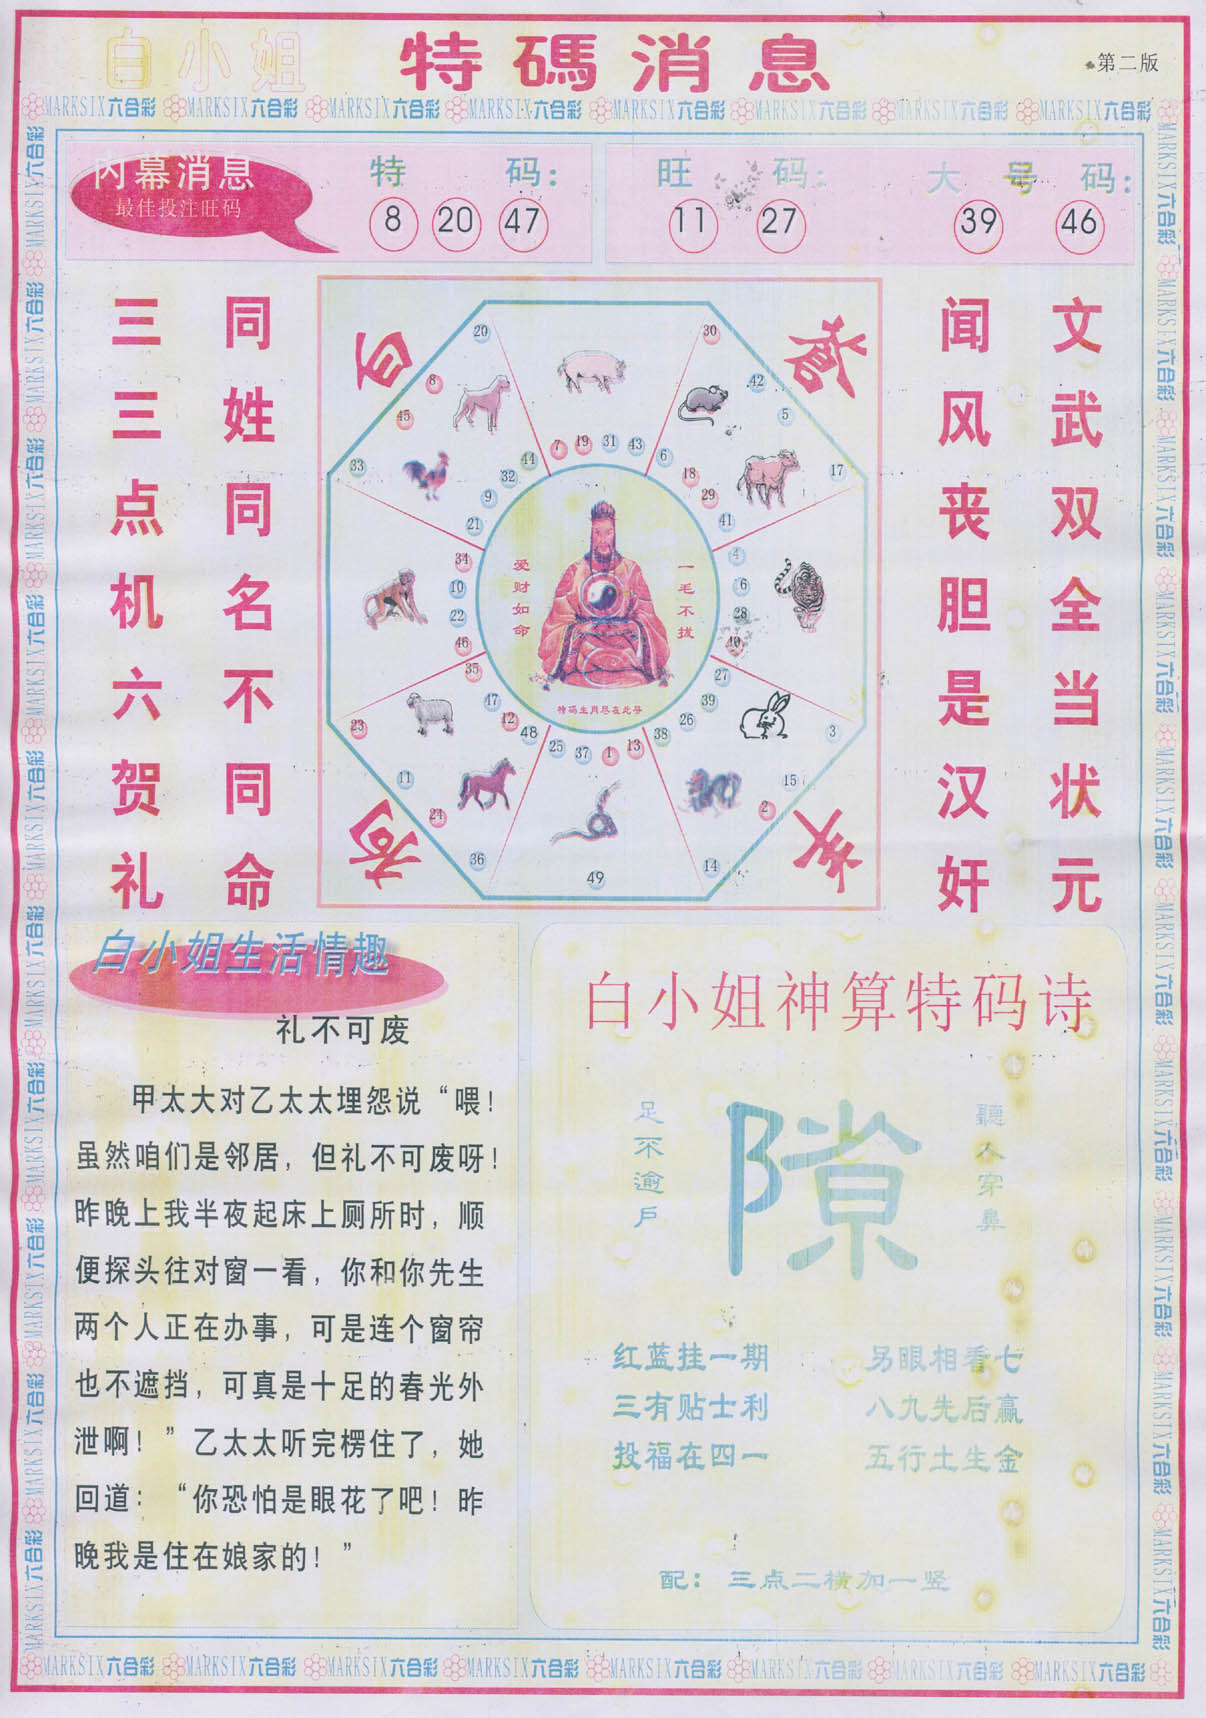 白小姐 特碼消息
第二版
MARKSIX六合彩 MARKSIX六合彩 MARKSIX六合彩 MARKSIX六合彩 MARKSIX六合彩 MARKSIX六合彩 MARKSIX六合彩 MARKSIX六合彩
内幕消息
最佳投注旺码
特 码：
8 20 47
旺 码：
11 27
大 号 码：
39 46
三三点机六贺礼
同姓同名不同命
闻风丧胆是汉奸
文武双全当状元
20
30
8
42
45
5
33
17
7 19 31 43
44
6
32
18
9
29
21
41
34
4
10
6
22
28
46
40
35
27
47
39
12
26
48
38
25 37 1 13
23
3
11
15
24
2
36
14
49
爱财如命
一毛不拔
特码生肖尽在此号
白小姐生活情趣
礼不可废
甲太大对乙太太埋怨说“喂！
虽然咱们是邻居，但礼不可废呀！
昨晚上我半夜起床上厕所时，顺
便探头往对窗一看，你和你先生
两个人正在办事，可是连个窗帘
也不遮挡，可真是十足的春光外
泄啊！”乙太太听完楞住了，她
回道：“你恐怕是眼花了吧！昨
晚我是住在娘家的！”
白小姐神算特码诗
足不逾戶
隙
聽人穿鼻
红蓝挂一期 另眼相看七
三有贴士利 八九先后赢
投福在四一 五行土生金
配：三点二横加一竖
MARKSIX六合彩 MARKSIX六合彩 MARKSIX六合彩 MARKSIX六合彩 MARKSIX六合彩 MARKSIX六合彩 MARKSIX六合彩 MARKSIX六合彩